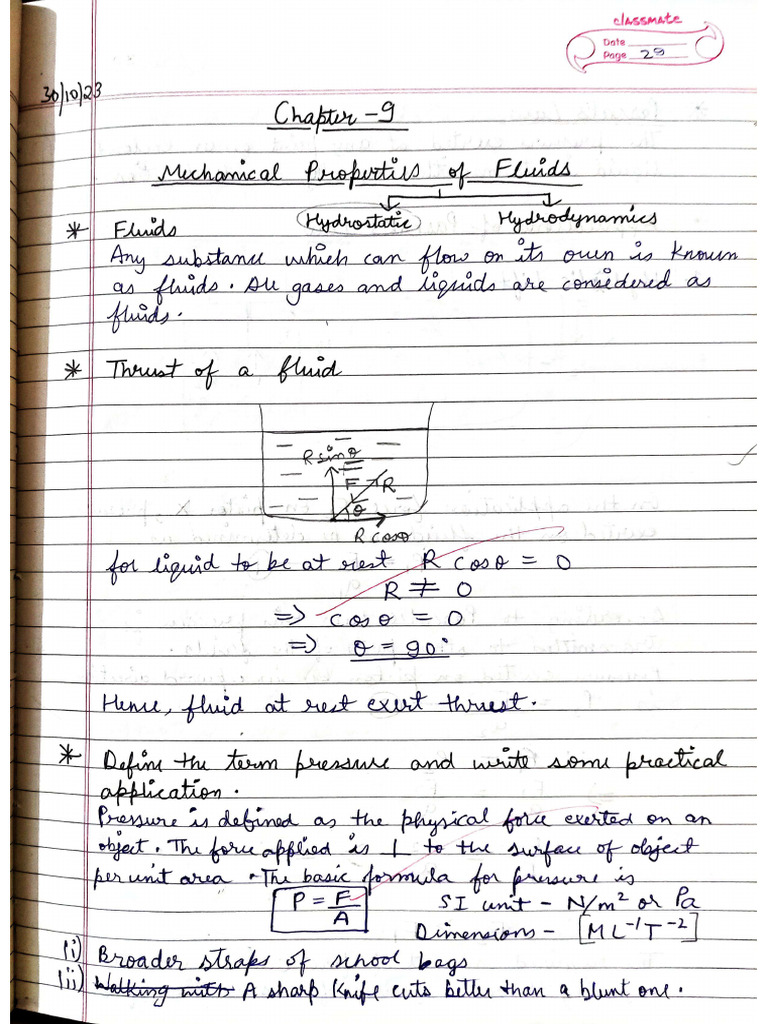 classmate
Date
Page 29
30/10/23
Chapter -9
Mechanical Properties of Fluids
Hydrostatic Hydrodynamics
* Fluids
Any substance which can flow on its own is known
as fluids. All gases and liquids are considered as
fluids.
* Thrust of a fluid
R sinθ
F R
θ
R cosθ
for liquid to be at rest R cosθ = 0
R ≠ 0
=> cosθ = 0
=> θ = 90°
Hence, fluid at rest exert thrust.
* Define the term pressure and write some practical
application.
Pressure is defined as the physical force exerted on an
object. The force applied is ⊥ to the surface of object
per unit area. The basic formula for pressure is
P = F/A SI unit - N/m² or Pa
Dimensions - [ML⁻¹T⁻²]
(i) Broader straps of school bags
(ii) Walking with A sharp knife cuts better than a blunt one.